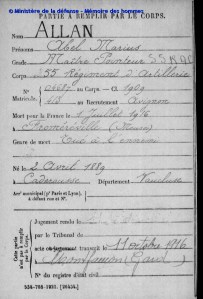 © Ministère de la défense - Mémoire des hommes
PARTIE À REMPLIR PAR LE CORPS.
Nom ALLAN
Prénoms Abel Marius
Grade Maître Pointeur
Corps 55 Régiment d'Artillerie
N° au Corps. — Cl. 1909
Matricule. au Recrutement Avignon
Mort pour la France le 1 Juillet 1916
à Fromeréville (Meuse)
Genre de mort Tué à l'ennemi
Né le 2 Avril 1889
à Caderousse Département Vaucluse
Arr' municipal (p' Paris et Lyon),
à défaut rue et N°.
Cette partie n'est pas à remplir par le Corps.
Jugement rendu le
par le Tribunal de
acte ou jugement transcrit le 11 octobre 1916
à
N° du registre d'état civil
534-708-1921. [26434.]